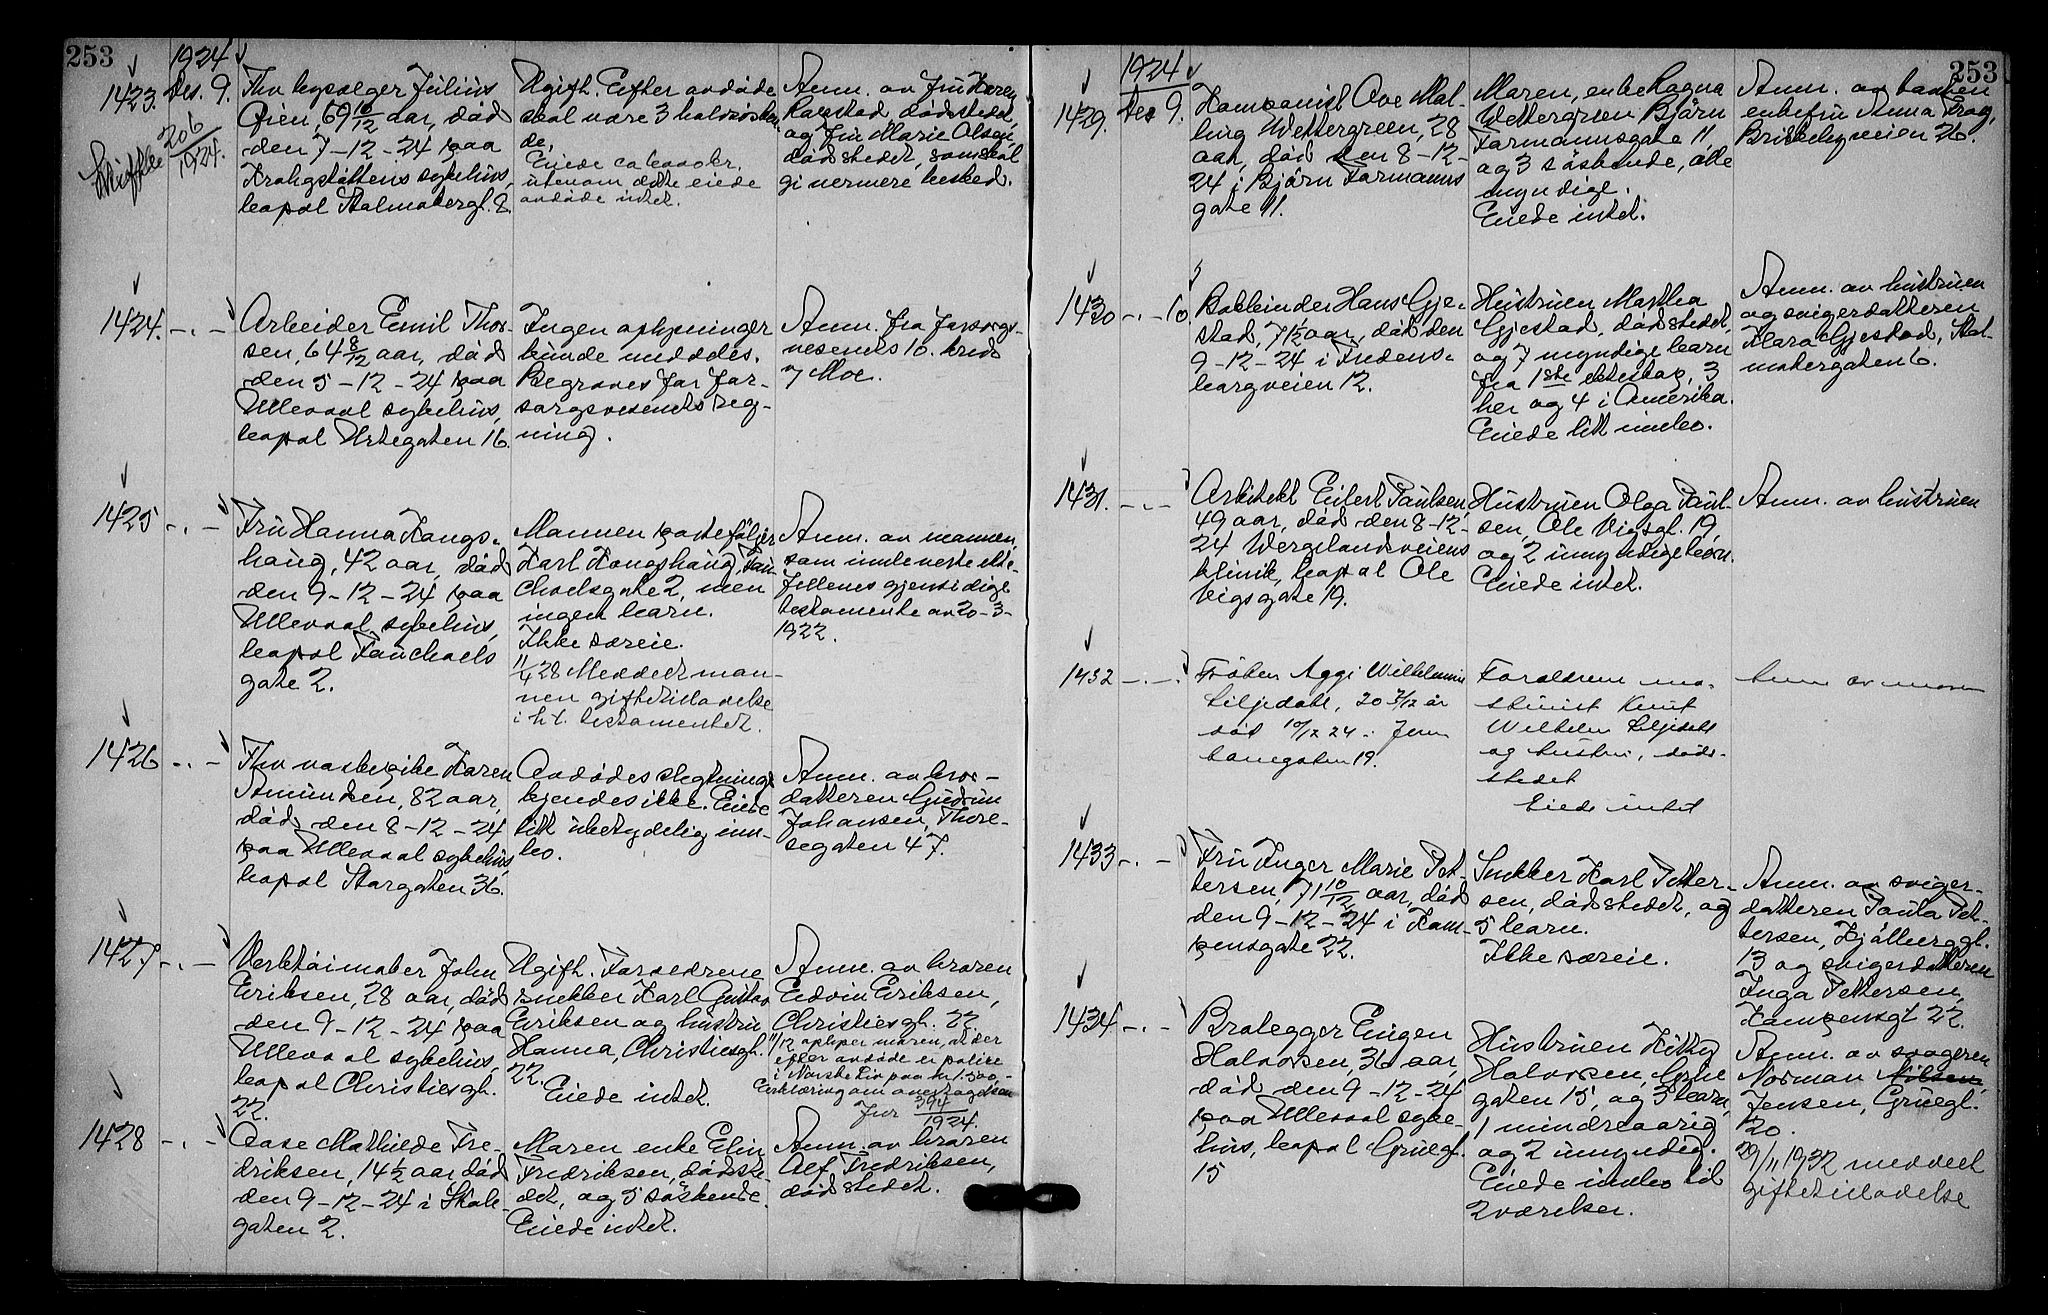 253
1924
1423. Des. 9.
Skifte 206/1924.
Fhv. Øien, 69 10/12 aar, død
den 7-12-24 paa
Krohgstøttens sykehus,
bopæl Kalmatergt. 8.
Ugift. Efter avdøde
skal være 3 halvsøsken-
de.
Eiede ca
utenom dette eiede
avdøde intet.
Anm. av fru
dødstedet,
og fru Marie Olsen,
dødstedet, som skal
gi nermere besked.
1424. -.-
Arbeider Emil Thor-
sen, 64 8/12 aar, død
den 5-12-24 paa
Ullevaal sykehus,
bopæl Urtegaten 16.
Ingen oplysninger
kunde meddeles.
Begraves for for-
sorgsvesenets reg-
ning.
Anm. fra forsorgs-
vesenets 10. kreds
v/ Moe.
1425 -.-
Fru Hanna Kongs-
haug, 42 aar, død
den 9-12-24 paa
Ullevaal sykehus,
bopæl Fauchaels
gate 2.
Mannen portefølje
Karl Kongshaug, Fau-
chaelsgate 2, men
ingen barn.
Ikke særeie.
11/4 28 Meddelt man-
nen giftetilladelse
i h. t. testamentet.
Anm. av mannen,
som innleverte ekte-
fellenes gjensidige
testamente av 20-3-
1922.
1426 -.-
Fhv. vaskepike Karen
Amundsen, 82 aar,
død den 8-12-24
paa Ullevaal sykehus,
bopæl Storgaten 36.
Avdødes slegtninge
kjendes ikke. Eiede
litt ubetydelig inn-
bo.
Anm. av bror-
datteren Gudrun
Johansen, Thore-
segaten 47.
1427 -.-
Verktøimaker John
Eriksen, 28 aar, død
den 9-12-24 paa
Ullevaal sykehus,
bopæl Christiesgt.
22.
Ugift. Forældrene
snekker Karl Gustav
Eriksen og hustru
Hanna, Christiesgt.
22.
Eiede intet.
Anm. av broren
Edvin Eriksen,
Christiesgt. 22.
11/12 oplyser moren, at der
efter avdøde er polise
i Norske Liv paa kr 1.500-
Erklæring om
Jnr 394/1924.
1428 -.-
Aase Mathilde Fre-
driksen, 14½ aar, død
den 9-12-24 i Skole-
gaten 2.
Moren enke Elin
Fredriksen, dødste-
det, og 5 søskende.
Eiede intet.
Anm. av broren
Alf Fredriksen,
dødstedet.
253
1924
1429. Des 9.
Komponist Ove Mal-
ling Wettergreen, 28
aar, død den 8-12-
24 i Bjørn Farmanns
gate 11.
Moren, enke Ragna
Wettergreen Bjørn
Farmannsgate 11
og 3 søskende, alle
myndige.
Eiede intet.
Anm. av tanten
enkefru Anna Krag,
Briskebyveien 26.
1430 -.- 10.
Bokbinder Hans Gje-
stad, 71½ aar, død den
9-12-24 i Fredens-
borgveien 12.
Hustruen Martha
Gjestad, dødstedet,
og 7 myndige barn
fra 1ste ekteskap, 3
her og 4 i Amerika.
Eiede litt innbo.
Anm. av hustruen
og svigerdatteren
Klara Gjestad, Kal-
matergaten 6.
1431. -.-
Arkitekt Eilert Paulsen,
49 aar, død den 8-12-
24 Wergelandsveiens
klinik, bopæl Ole
Vigsgate 19.
Hustruen Olga Paul-
sen, Ole Vigsgt. 19,
og 2 umyndige barn.
Eiede intet.
Anm. av hustruen
1432 -.-
Frøken Aggi Wilhelmine
Liljedahl, 20 3/12 år
død 10/12 24 i Jern-
banegaten 19.
Forældrene ma-
skinist Knut
Wilhelm Liljedahl
og hustru, død-
stedet
Eiede intet
Anm av moren
1433 -.-
Fru Inger Marie Pet-
tersen, 71 10/12 aar, død
den 9-12-24 i Kam-
pensgate 22.
Snekker Karl Petter-
sen, dødstedet, og
5 barn.
Ikke særeie.
Anm. av sviger-
datteren Paula Pet-
tersen, Kjølberggt.
13 og svigerdatteren
Inga Pettersen,
Kampensgt 22.
1434 -.-
Brolegger Eugen
Halvorsen, 36 aar,
død den 9-12-24
paa Ullevaal syke-
hus, bopæl Gruegt.
15
Hustruen Kitty
Halvorsen, Grue
gaten 15, og 3 barn,
1 mindreaarig
og 2 umyndig.
Eiede innbo til
2 værelser.
Anm. av svogeren
Norman Nilsen,
Jensen, Gruegt.
20.
29/11 1932 meddelt
giftetilladelse